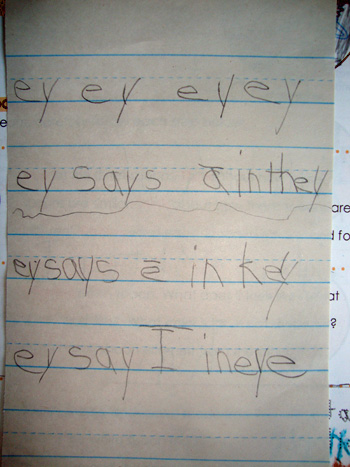 ey ey ey ey
ey says ā in they
ey says ē in key
ey say Ī in eye
are
d fo
at
?